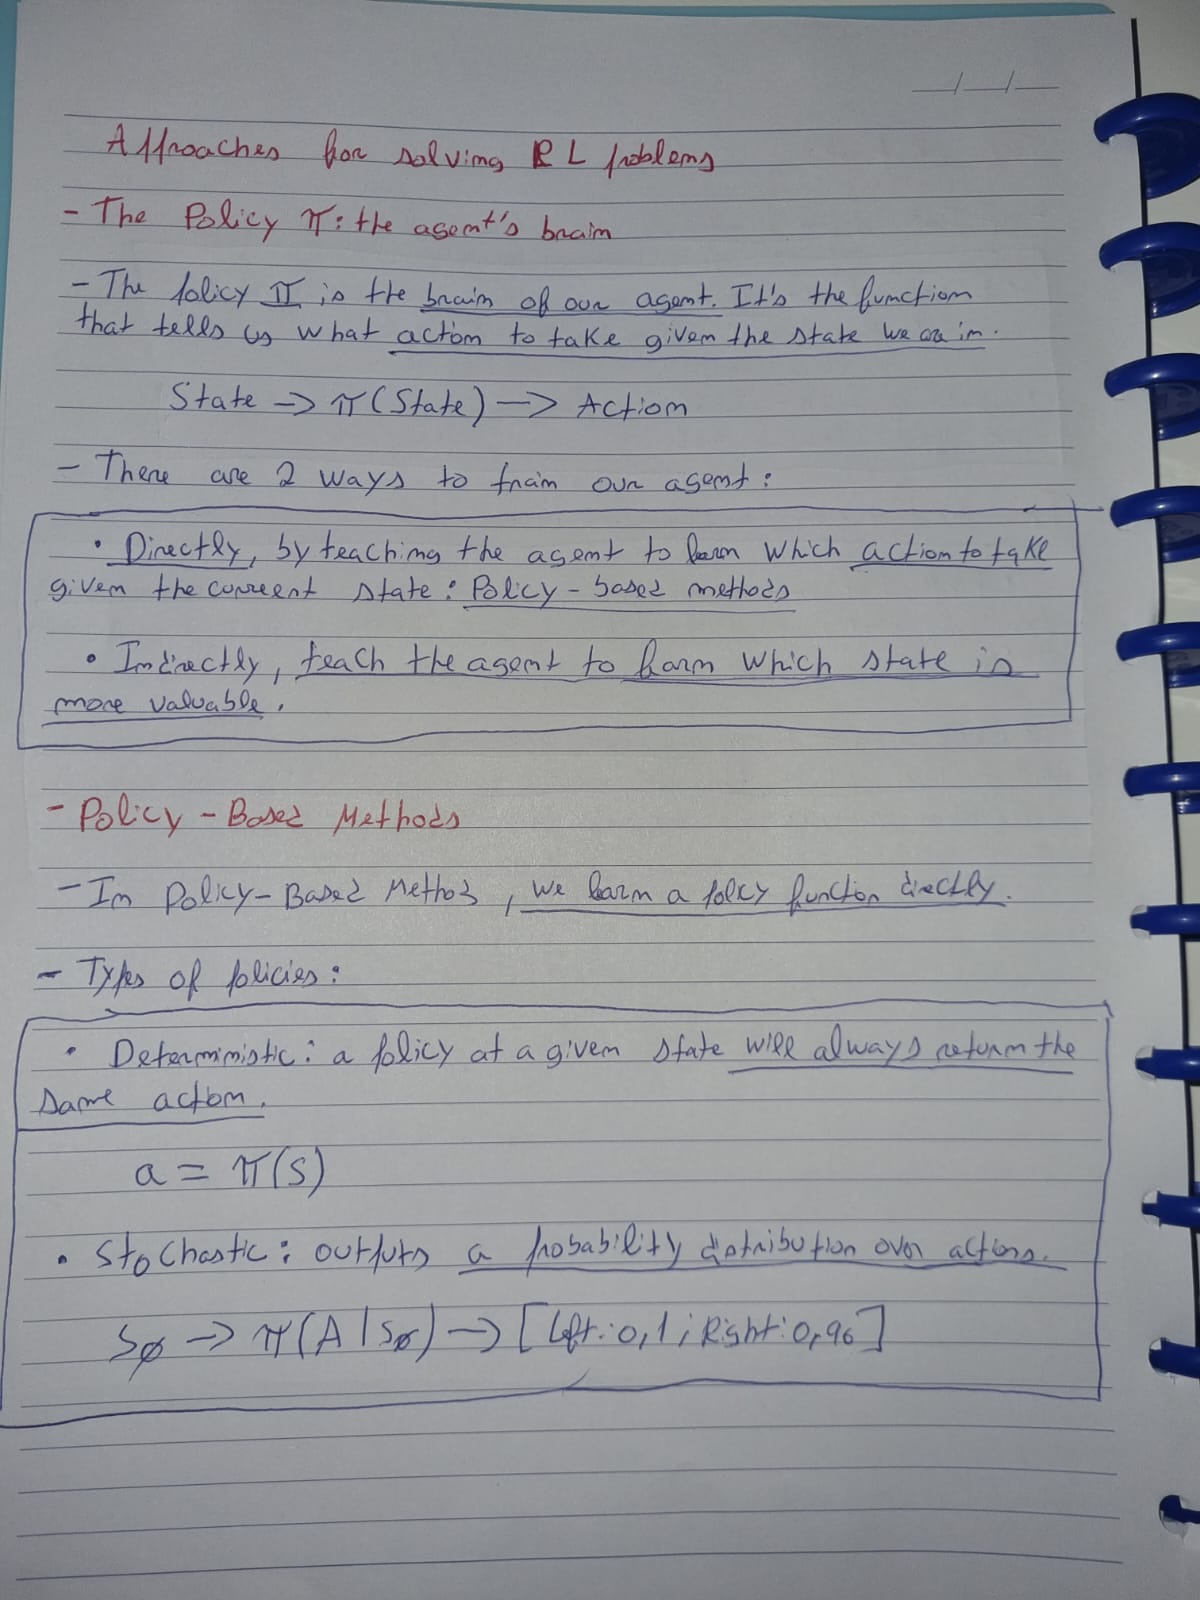 Approaches for solving RL problems
- The Policy π: the agent's brain
- The policy π is the brain of our agent. It's the function
that tells us what action to take given the state we are in.
State -> π(State) -> Action
- There are 2 ways to train our agent:
• Directly, by teaching the agent to learn which action to take
given the current state: Policy-based methods
• Indirectly, teach the agent to learn which state is
more valuable.
- Policy-Based Methods
- In Policy-Based Method, we learn a policy function directly.
- Types of policies:
• Deterministic: a policy at a given state will always return the
same action.
a = π(s)
• Stochastic: outputs a probability distribution over actions.
s∅ -> π(A|s∅) -> [Left:0,1; Right:0,96]